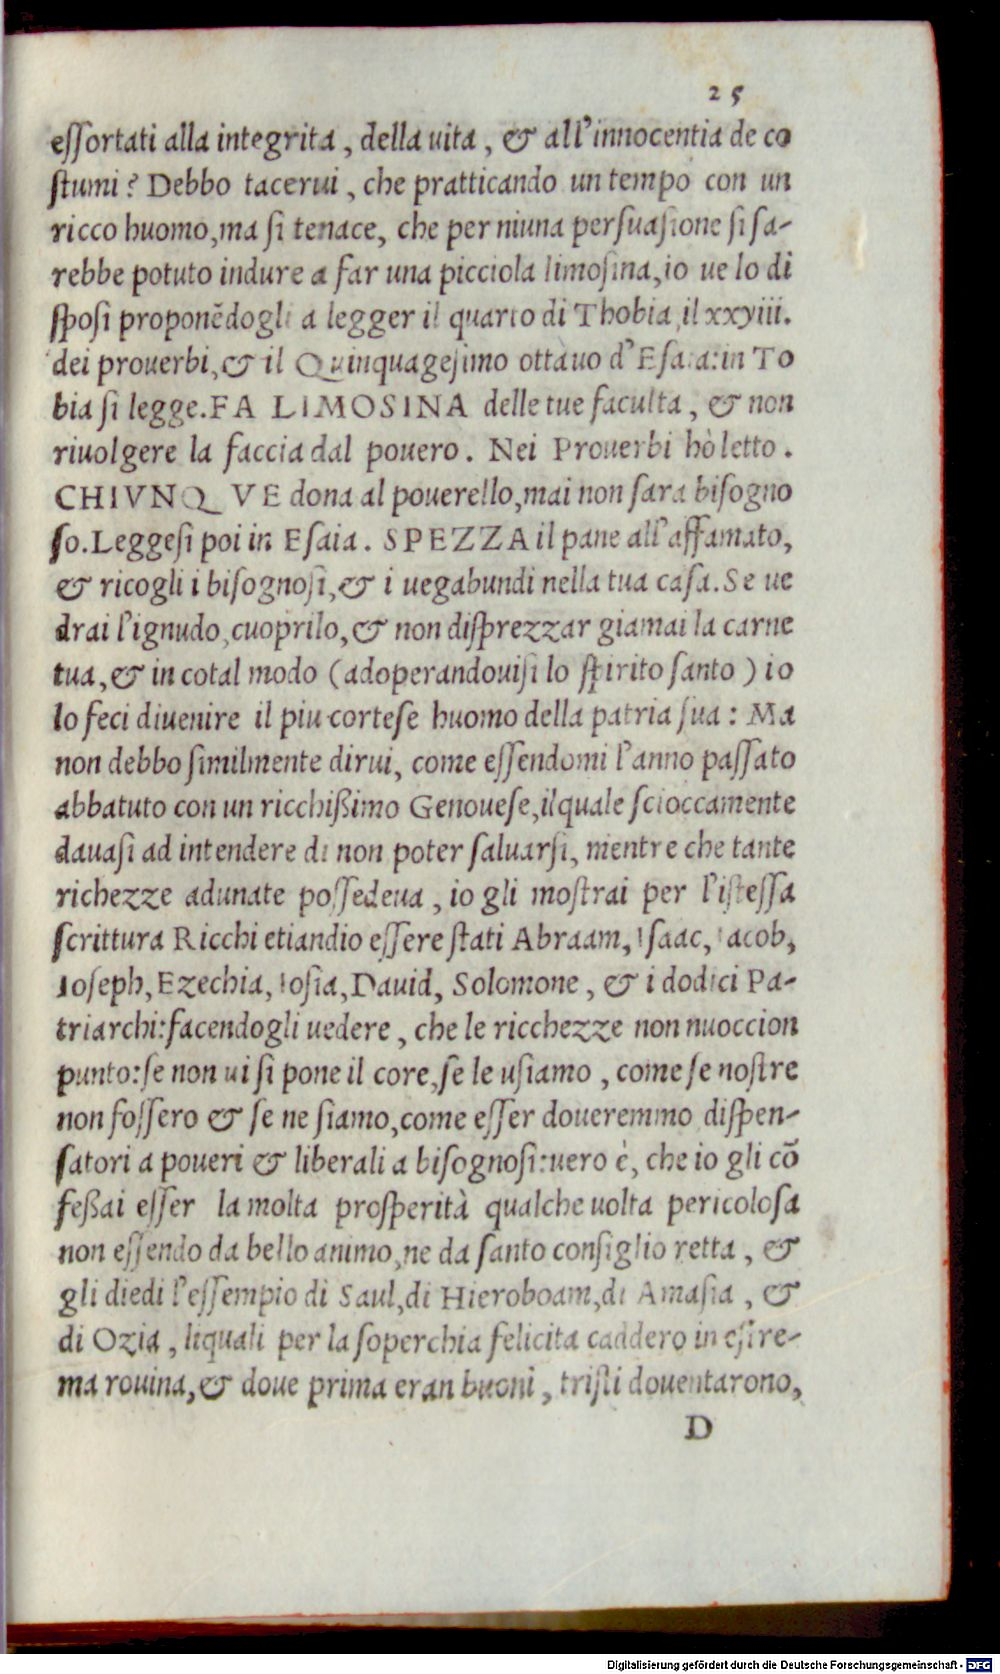 25
essortati alla integrita, della uita, & all'innocentia de co
stumi? Debbo tacerui, che pratticando un tempo con un
ricco huomo, ma si tenace, che per niuna persuasione si sa-
rebbe potuto indure a far una picciola limosina, io ue lo di
sposi proponēdogli a legger il quarto di Thobia, il xxyiii.
dei prouerbi, & il Quinquagesimo ottauo d'Esaia: in To
bia si legge. FA LIMOSINA delle tue faculta, & non
riuolgere la faccia dal pouero. Nei Prouerbi hò letto.
CHIVNQVE dona al pouerello, mai non sara bisogno
so. Leggesi poi in Esaia. SPEZZA il pane all'affamato,
& ricogli i bisognosi, & i uegabundi nella tua casa. Se ue
drai l'ignudo, cuoprilo, & non disprezzar giamai la carne
tua, & in cotal modo (adoperandouisi lo spirito santo) io
lo feci diuenire il piu cortese huomo della patria sua: Ma
non debbo similmente dirui, come essendomi l'anno passato
abbatuto con un ricchißimo Genouese, ilquale scioccamente
dauasi ad intendere di non poter saluarsi, mentre che tante
richezze adunate possedeua, io gli mostrai per l'istessa
scrittura Ricchi etiandio essere stati Abraam, Isaac, Iacob,
Ioseph, Ezechia, Iosia, Dauid, Solomone, & i dodici Pa-
triarchi: facendogli uedere, che le ricchezze non nuoccion
punto: se non ui si pone il core, se le usiamo, come se nostre
non fossero & se ne siamo, come esser doueremmo dispen-
satori a poueri & liberali a bisognosi: uero è, che io gli cō
feßai esser la molta prosperità qualche uolta pericolosa
non essendo da bello animo, ne da santo consiglio retta, &
gli diedi l'essempio di Saul, di Hieroboam, di Amasia, &
di Ozia, liquali per la soperchia felicita caddero in estre-
ma rouina, & doue prima eran buoni, tristi douentarono,
D
Digitalisierung gefördert durch die Deutsche Forschungsgemeinschaft - DFG